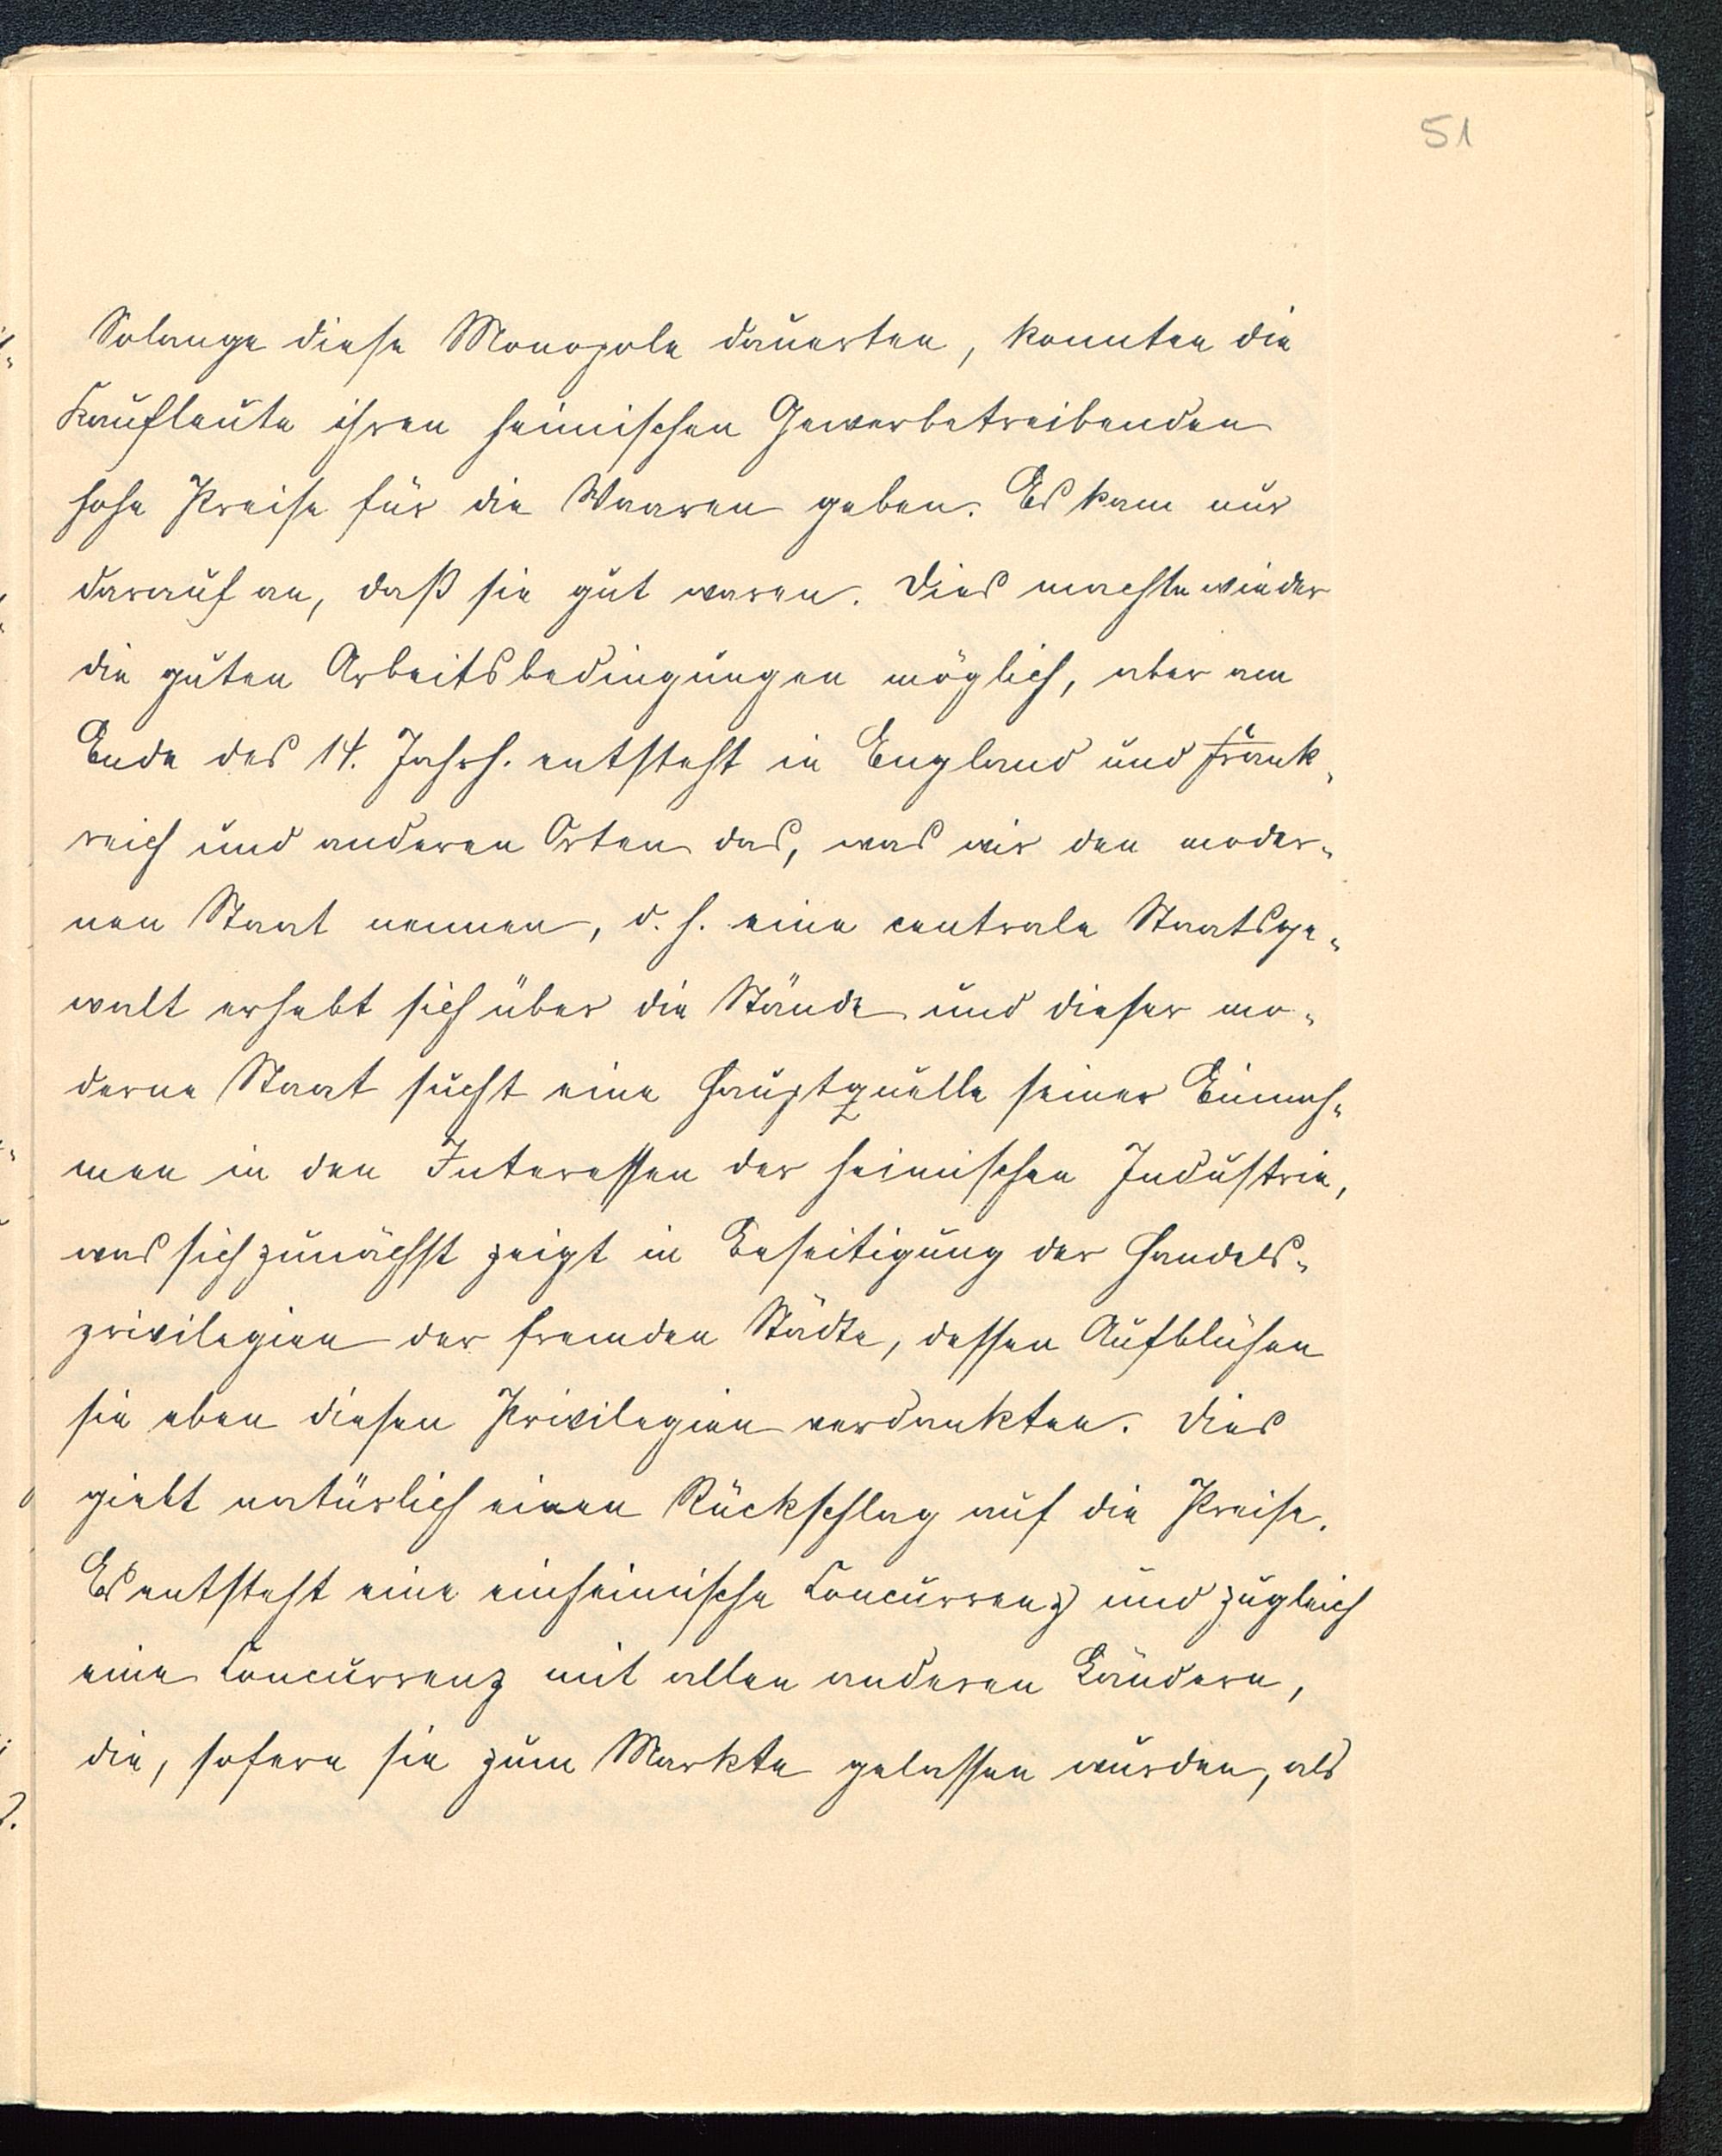 51
Solange diese Monopole dauerten, konnten die
Kaufleute ihren heimischen Gewerbetreibenden
hohe Preise für die Waaren geben. Es kam nur
darauf an, daß sie gut waren. Dies machte wieder
die guten Arbeitsbedingungen möglich, aber am
Ende des 14. Jahrh. entsteht in England und Frank-
reich und anderen Orten das, was wir den moder-
nen Staat nennen, d. h. eine centrale Staatsge-
walt erhebt sich über die Stände und dieser mo-
derne Staat sucht eine Hauptquelle seiner Einnah-
men in den Interessen der heimischen Industrie,
was sich zunächst zeigt in Beseitigung der Handels-
privilegien der fremden Städte, dessen Aufblühen
sie eben diesen Privilegien verdankten. Dies
giebt natürlich einen Rückschlag auf die Preise.
Es entsteht eine einheimische Concurrenz und zugleich
eine Concurrenz mit allen anderen Ländern,
die, sofern sie zum Markte gelassen wurden, als